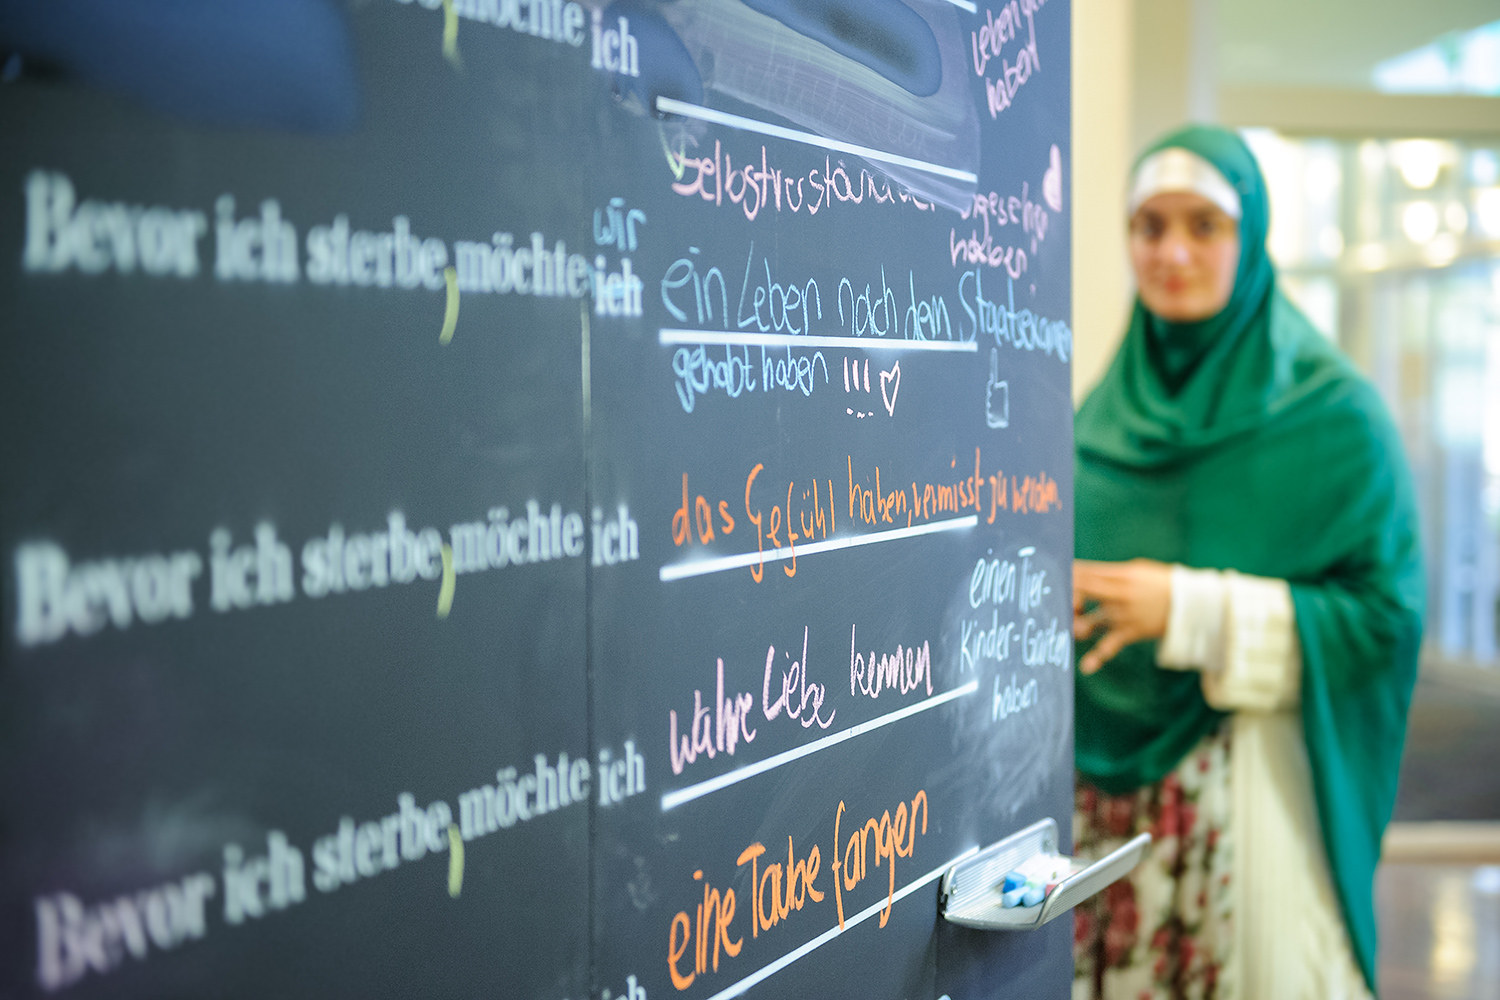 möchte ich
Leben
haben
Bevor ich sterbe, möchte ich
wir
haben
ein Leben nach dem Staatsexamen
gehabt haben !!!
Bevor ich sterbe, möchte ich das Gefühl haben, vermisst zu werden.
einen Tier-
Kinder-Garten
haben
Bevor ich sterbe, möchte ich wahre Liebe kennen
eine Taube fangen
ich